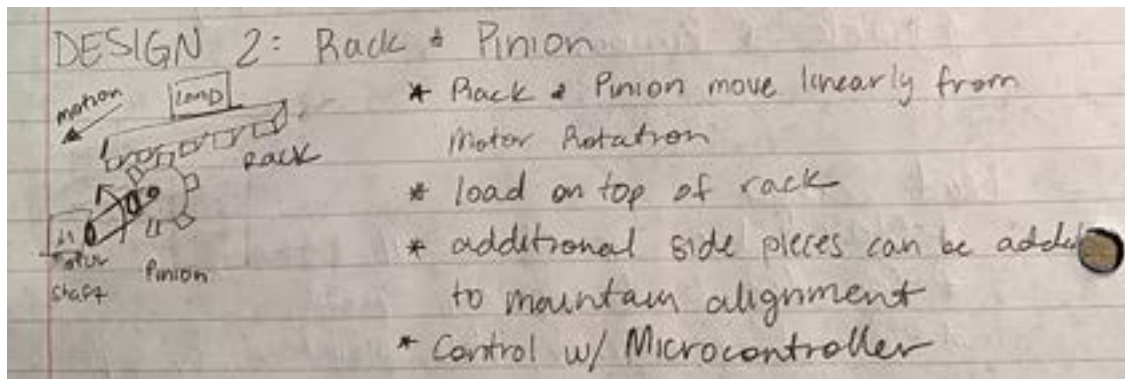 DESIGN 2: Rack & Pinion
motion
LOAD
RACK
Motor
shaft
Pinion
* Rack & Pinion move linearly from
Motor Rotation
* load on top of rack
* additional side pieces can be added
to maintain alignment
* Control w/ Microcontroller